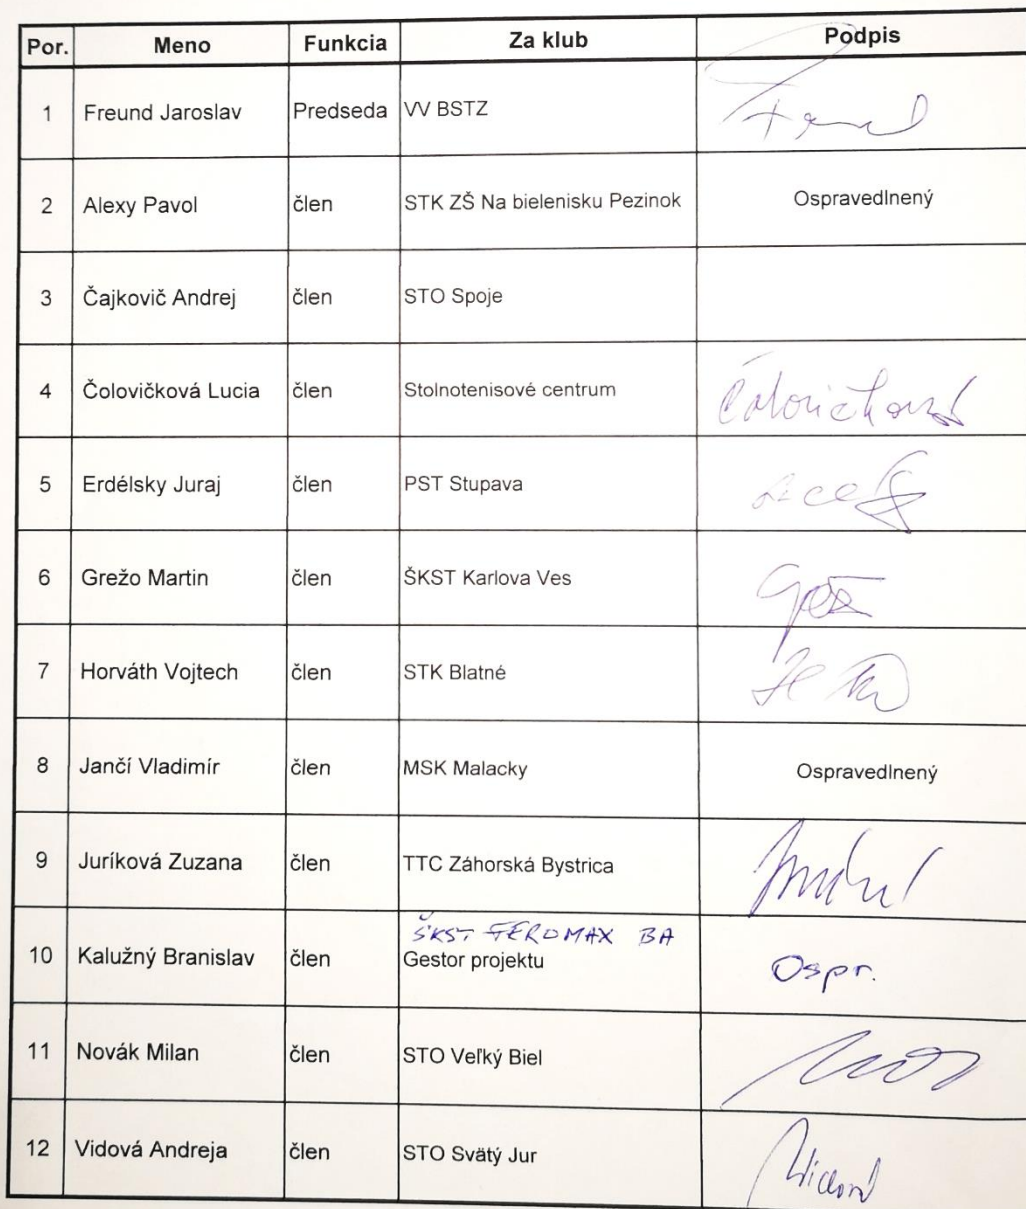 Por. Meno Funkcia Za klub Podpis
1 Freund Jaroslav Predseda VV BSTZ
2 Alexy Pavol člen STK ZŠ Na bielenisku Pezinok Ospravedlnený
3 Čajkovič Andrej člen STO Spoje
4 Čolovičková Lucia člen Stolnotenisové centrum Čolovičková
5 Erdélsky Juraj člen PST Stupava
6 Grežo Martin člen ŠKST Karlova Ves
7 Horváth Vojtech člen STK Blatné
8 Jančí Vladimír člen MSK Malacky Ospravedlnený
9 Juríková Zuzana člen TTC Záhorská Bystrica
ŠKST FEROMAX BA
10 Kalužný Branislav člen Gestor projektu Ospr.
11 Novák Milan člen STO Veľký Biel
12 Vidová Andreja člen STO Svätý Jur Vidová